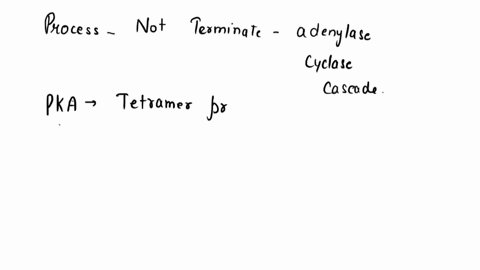 Process - Not Terminate - adenylase
Cyclase
Cascade.
PKA → Tetramer pr